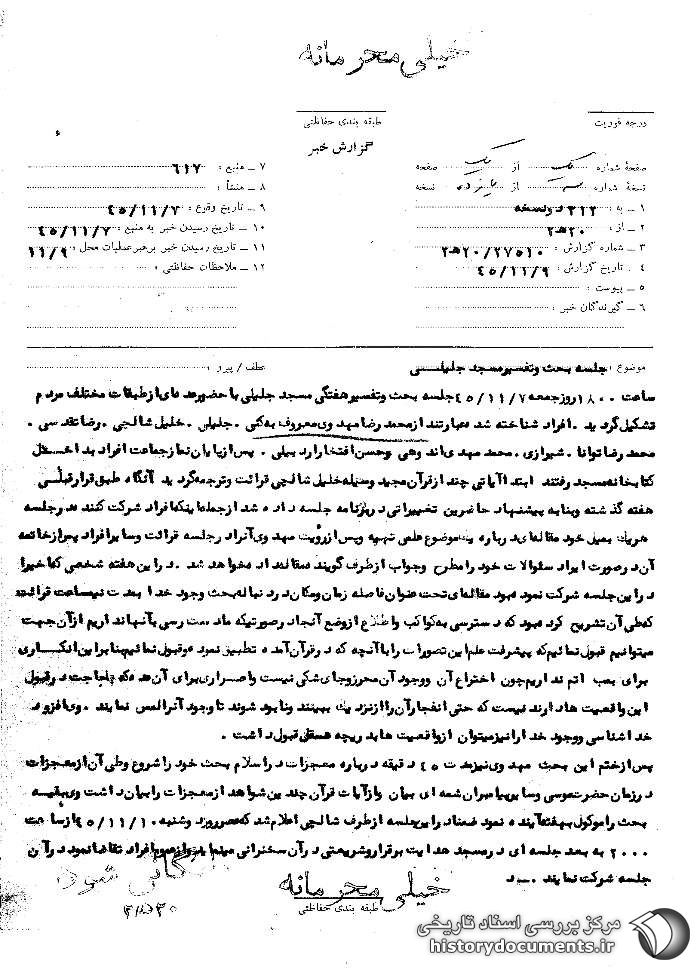 خیلی محرمانه
درجه فوریت
طبقه بندی حفاظتی
گزارش خبر
صفحهٔ شماره یک از یک صفحه
نسخهٔ شماره سه از نسخه
۱ ـ به : ۳۱۲ دو نسخه
۲ ـ از : ۲۰هـ۲
۳ ـ شماره گزارش : ۲۰/۲۷۵۱۰هـ۲
۴ ـ تاریخ گزارش : ۴۵/۱۱/۹
۵ ـ پیوست :
۶ ـ گیرندگان خبر :
۷ ـ منبع : ۶۱۷
۸ ـ منشأ :
۹ ـ تاریخ وقوع : ۴۵/۱۱/۷
۱۰ ـ تاریخ رسیدن خبر به منبع : ۴۵/۱۱/۷
۱۱ ـ تاریخ رسیدن خبر برهبرعملیات محل : ۱۱/۹
۱۲ ـ ملاحظات حفاظتی :
موضوع : جلسه بحث و تفسیر مسجد جلیلی
عطف / پیرو :
ساعت ۱۸۰۰ روز جمعه ۴۵/۱۱/۷ جلسه بحث و تفسیر هفتگی مسجد جلیلی با حضور عده ای از طبقات مختلف مردم
تشکیل گردید . افراد شناخته شده عبارتند از محمد رضا مهدوی معروف به کنی . جلیلی . خلیل شالچی . رضا تقدسی .
محمد رضا توانا . شیرازی . محمد مهدی اندوهی و حسن افتخار اردبیلی . پس از پایان نماز جماعت افراد بداخل
کتابخانه مسجد رفتند ابتدا آیاتی چند از قرآن مجید وسیله خلیل شالچی قرائت و ترجمه گردید آنگاه طبق قرار قبلی
هفته گذشته و بنا به پیشنهاد حاضرین تغییراتی در برنامه جلسه داده شد از جمله اینکه افراد شرکت کننده در جلسه
هریک بمیل خود مقاله ای درباره یک موضوع علمی تهیه و پس از رؤیت مهدوی آنرا در جلسه قرائت و سایر افراد پس از خاتمه
آن در صورت ایراد سئوالات خود را مطرح و جواب از طرف گوینده مقاله داده خواهد شد . در این هفته شخصی که اخیرا
در این جلسه شرکت نموده بود مقاله ای تحت عنوان فاصله زمان و مکان در دنباله بحث وجود خدا بمدت نیم ساعت قرائت
که طی آن تشریح کرده بود که دسترسی به کواکب و اطلاع از وضع آنجا در صورتیکه ما دست رسی بآنها نداریم از آن جهت
میتوانیم قبول نمائیم که پیشرفت علم این تصورات را با آنچه که در قرآن آمده تطبیق نموده و قبول نمائیم بنابراین انکاری
برای بمب اتم نداریم چون اختراع آن و وجود آن محرز و جای شکی نیست و اصراری برای آن عده که لجاجت در قبول
این واقعیت ها دارند نیست که حتی انفجار آن را از نزدیک ببینند و نابود شوند تا وجود آنرا لمس نمایند . وی افزود
خداشناسی و وجود خدا را نیز میتوان از واقعیت ها بدریچه هستی قبول داشت .
پس از ختم این بحث مهدوی نیز مدت ۴۵ دقیقه درباره معجزات در اسلام بحث خود را شروع و طی آن از معجزات
در زمان حضرت موسی و سایر پیامبران شمه ای بیان و از آیات قرآن چندین شواهد از معجزات را بیان داشت وی بقیه
بحث را موکول بهفته آینده نمود ضمنا در این جلسه از طرف شالچی اعلام شد که عصر روز دوشنبه ۴۵/۱۱/۱۰ از ساعت
۲۰۰۰ به بعد جلسه ای در مسجد هدایت برقرار و شریعتی در آن سخنرانی مینماید و از عموم افراد تقاضا نمود در آن
جلسه شرکت نمایند .
بایگانی شود
خیلی محرمانه
طبقه بندی حفاظتی
مرکز بررسی اسناد تاریخی
historydocuments.ir